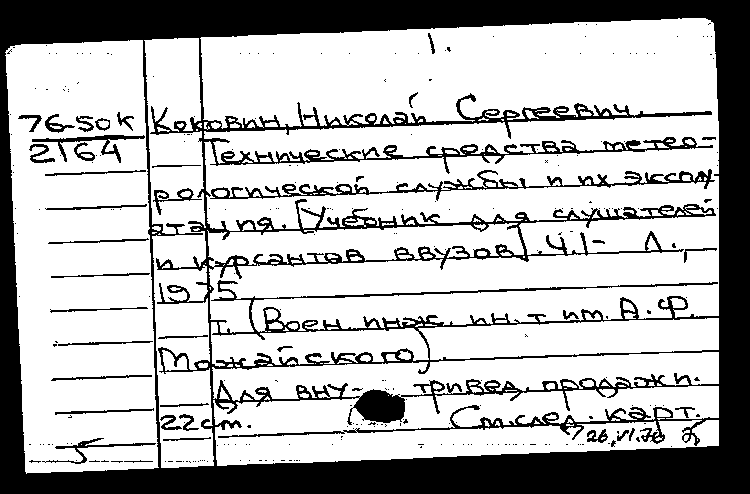 1.
76-50к Коковин, Николай Сергеевич.
2164 Технические средства метео-
рологической службы и их эксплу-
атация. [Учебник для слушателей
и курсантов ввузов]. Ч.1- Л.,
1975
т. (Воен. инж. ин.т им. А.Ф.
Можайского).
Для вну- тривед. продажи.
22см. См.след. карт.
5 26.VI.76